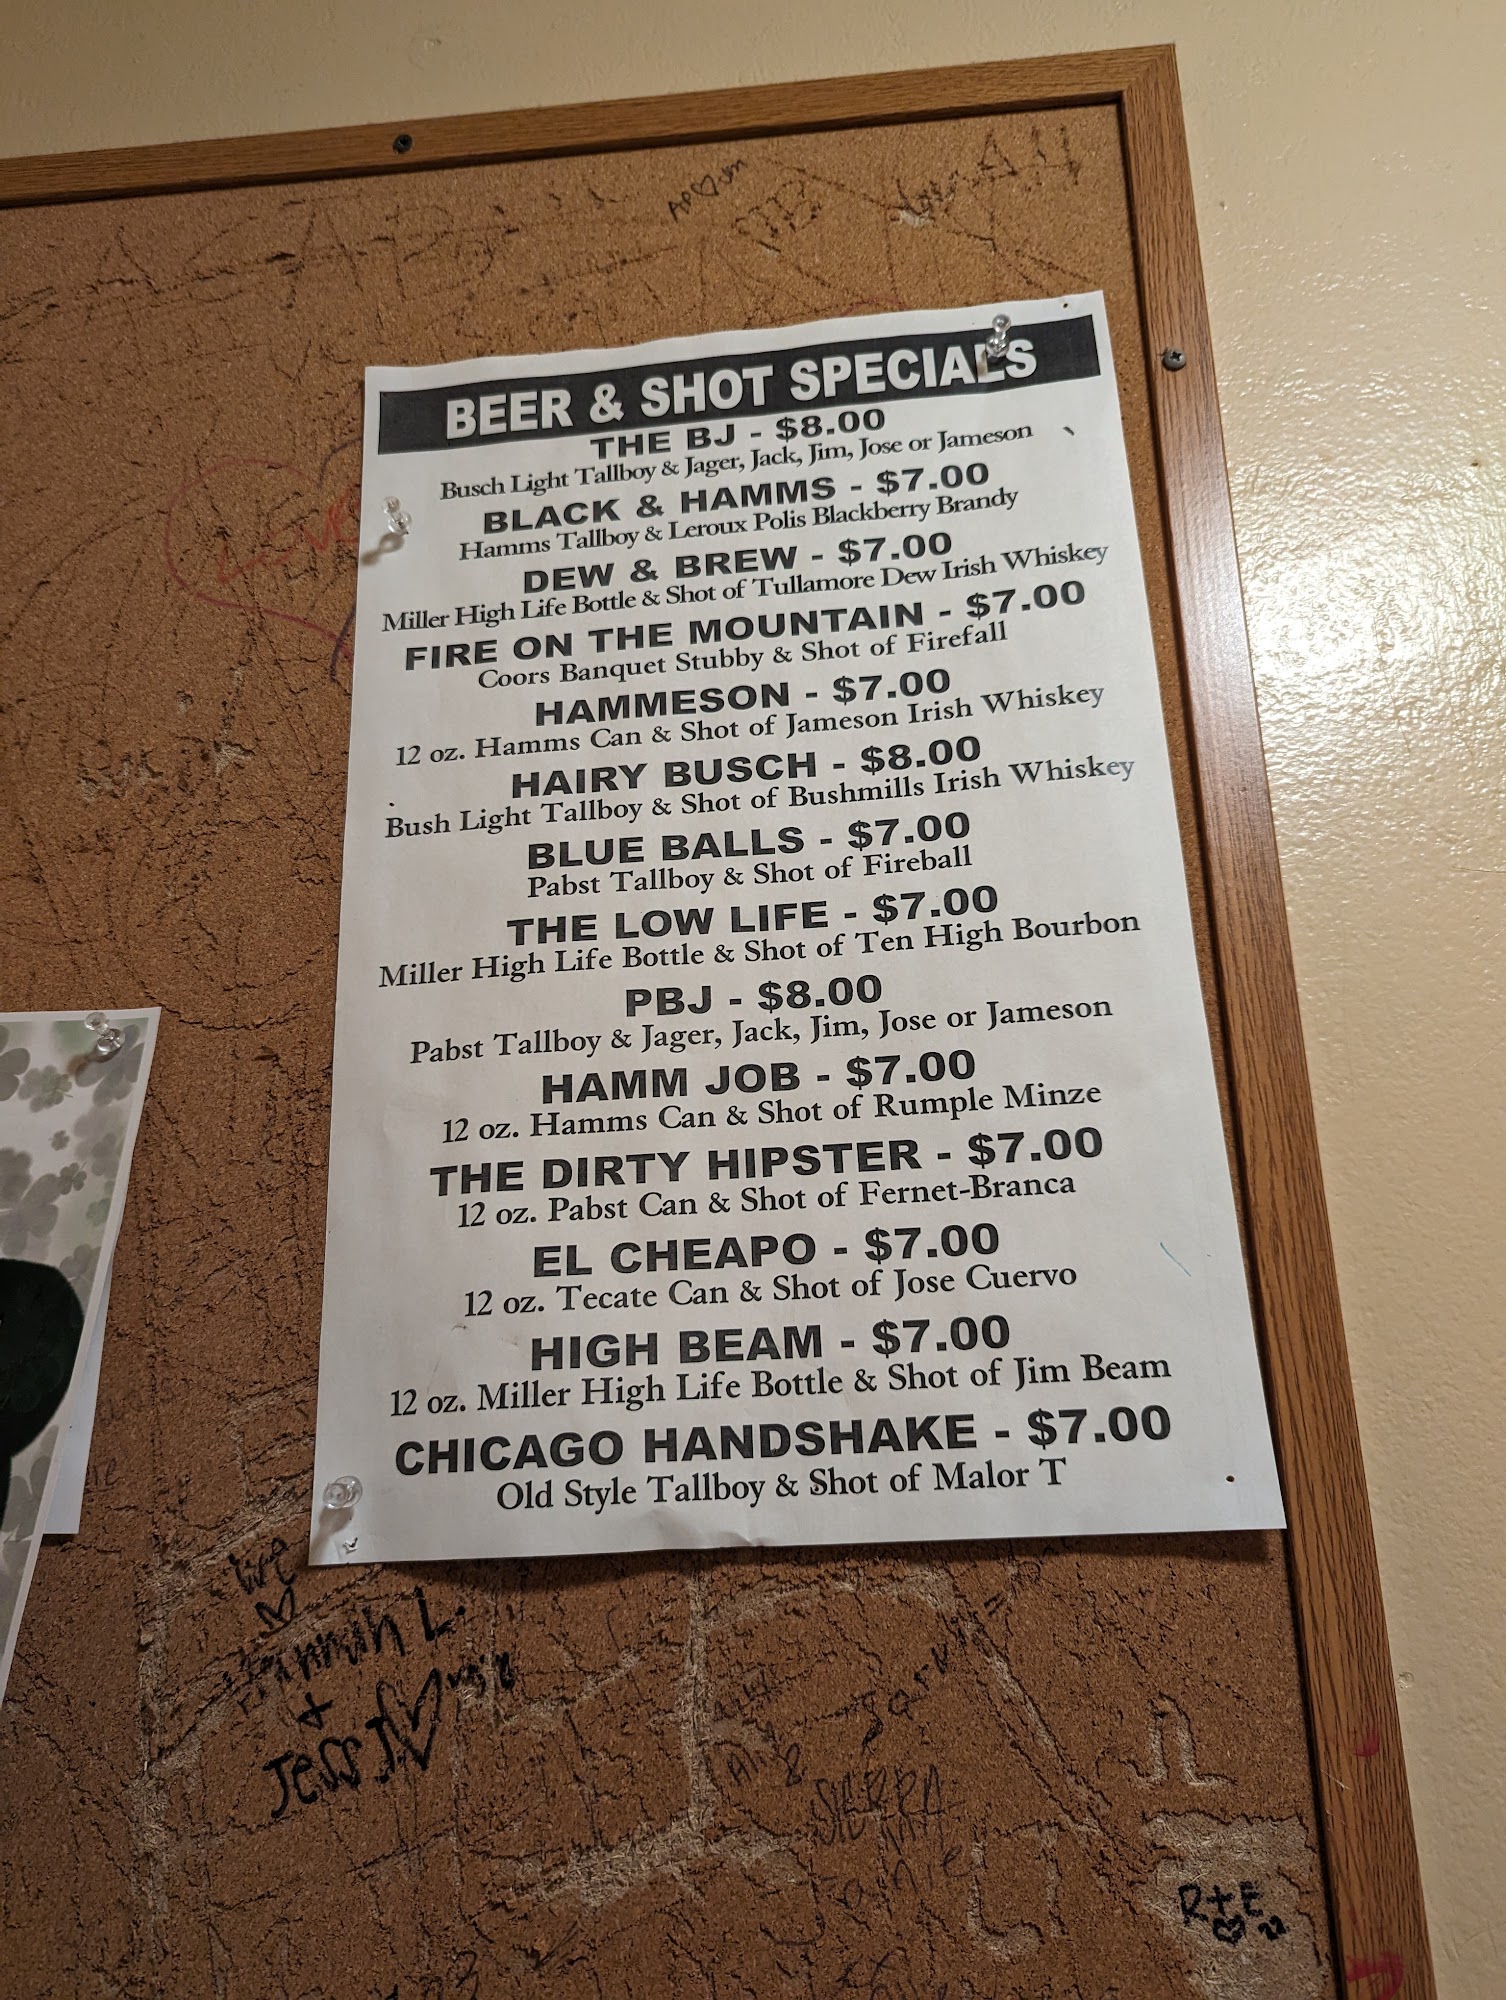 AP♡JM
LOVE
BEER & SHOT SPECIALS
THE BJ - $8.00
Busch Light Tallboy & Jager, Jack, Jim, Jose or Jameson
BLACK & HAMMS - $7.00
Hamms Tallboy & Leroux Polis Blackberry Brandy
DEW & BREW - $7.00
Miller High Life Bottle & Shot of Tullamore Dew Irish Whiskey
FIRE ON THE MOUNTAIN - $7.00
Coors Banquet Stubby & Shot of Firefall
HAMMESON - $7.00
12 oz. Hamms Can & Shot of Jameson Irish Whiskey
HAIRY BUSCH - $8.00
Bush Light Tallboy & Shot of Bushmills Irish Whiskey
BLUE BALLS - $7.00
Pabst Tallboy & Shot of Fireball
THE LOW LIFE - $7.00
Miller High Life Bottle & Shot of Ten High Bourbon
PBJ - $8.00
Pabst Tallboy & Jager, Jack, Jim, Jose or Jameson
HAMM JOB - $7.00
12 oz. Hamms Can & Shot of Rumple Minze
THE DIRTY HIPSTER - $7.00
12 oz. Pabst Can & Shot of Fernet-Branca
EL CHEAPO - $7.00
12 oz. Tecate Can & Shot of Jose Cuervo
HIGH BEAM - $7.00
12 oz. Miller High Life Bottle & Shot of Jim Beam
CHICAGO HANDSHAKE - $7.00
Old Style Tallboy & Shot of Malor T
Hannah L.
+
Jess J
SIERRA
R+E
♡ 22